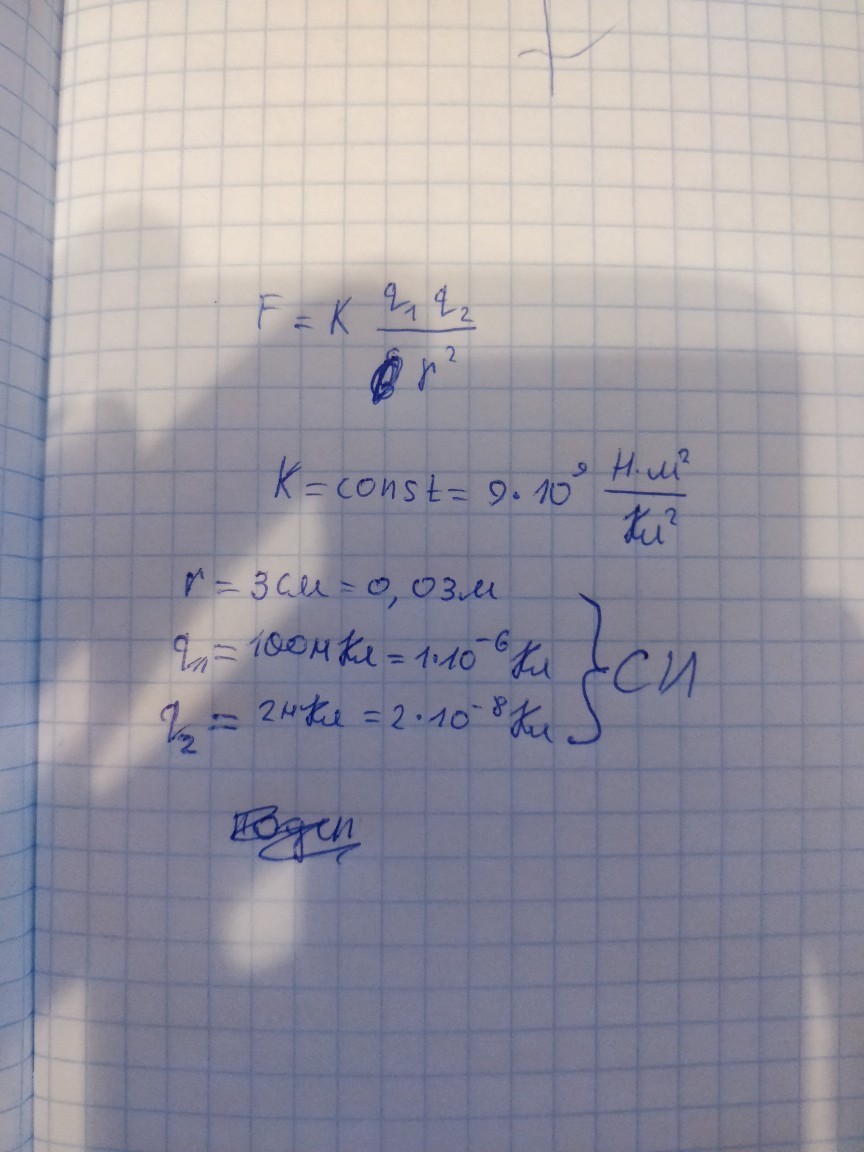 F = K q₁ q₂ / r²
K = const = 9·10⁹ Н·м² / Кл²
r = 3 см = 0,03м
q₁ = 100нКл = 1·10⁻⁶ Кл
q₂ = 2нКл = 2·10⁻⁸ Кл } СИ